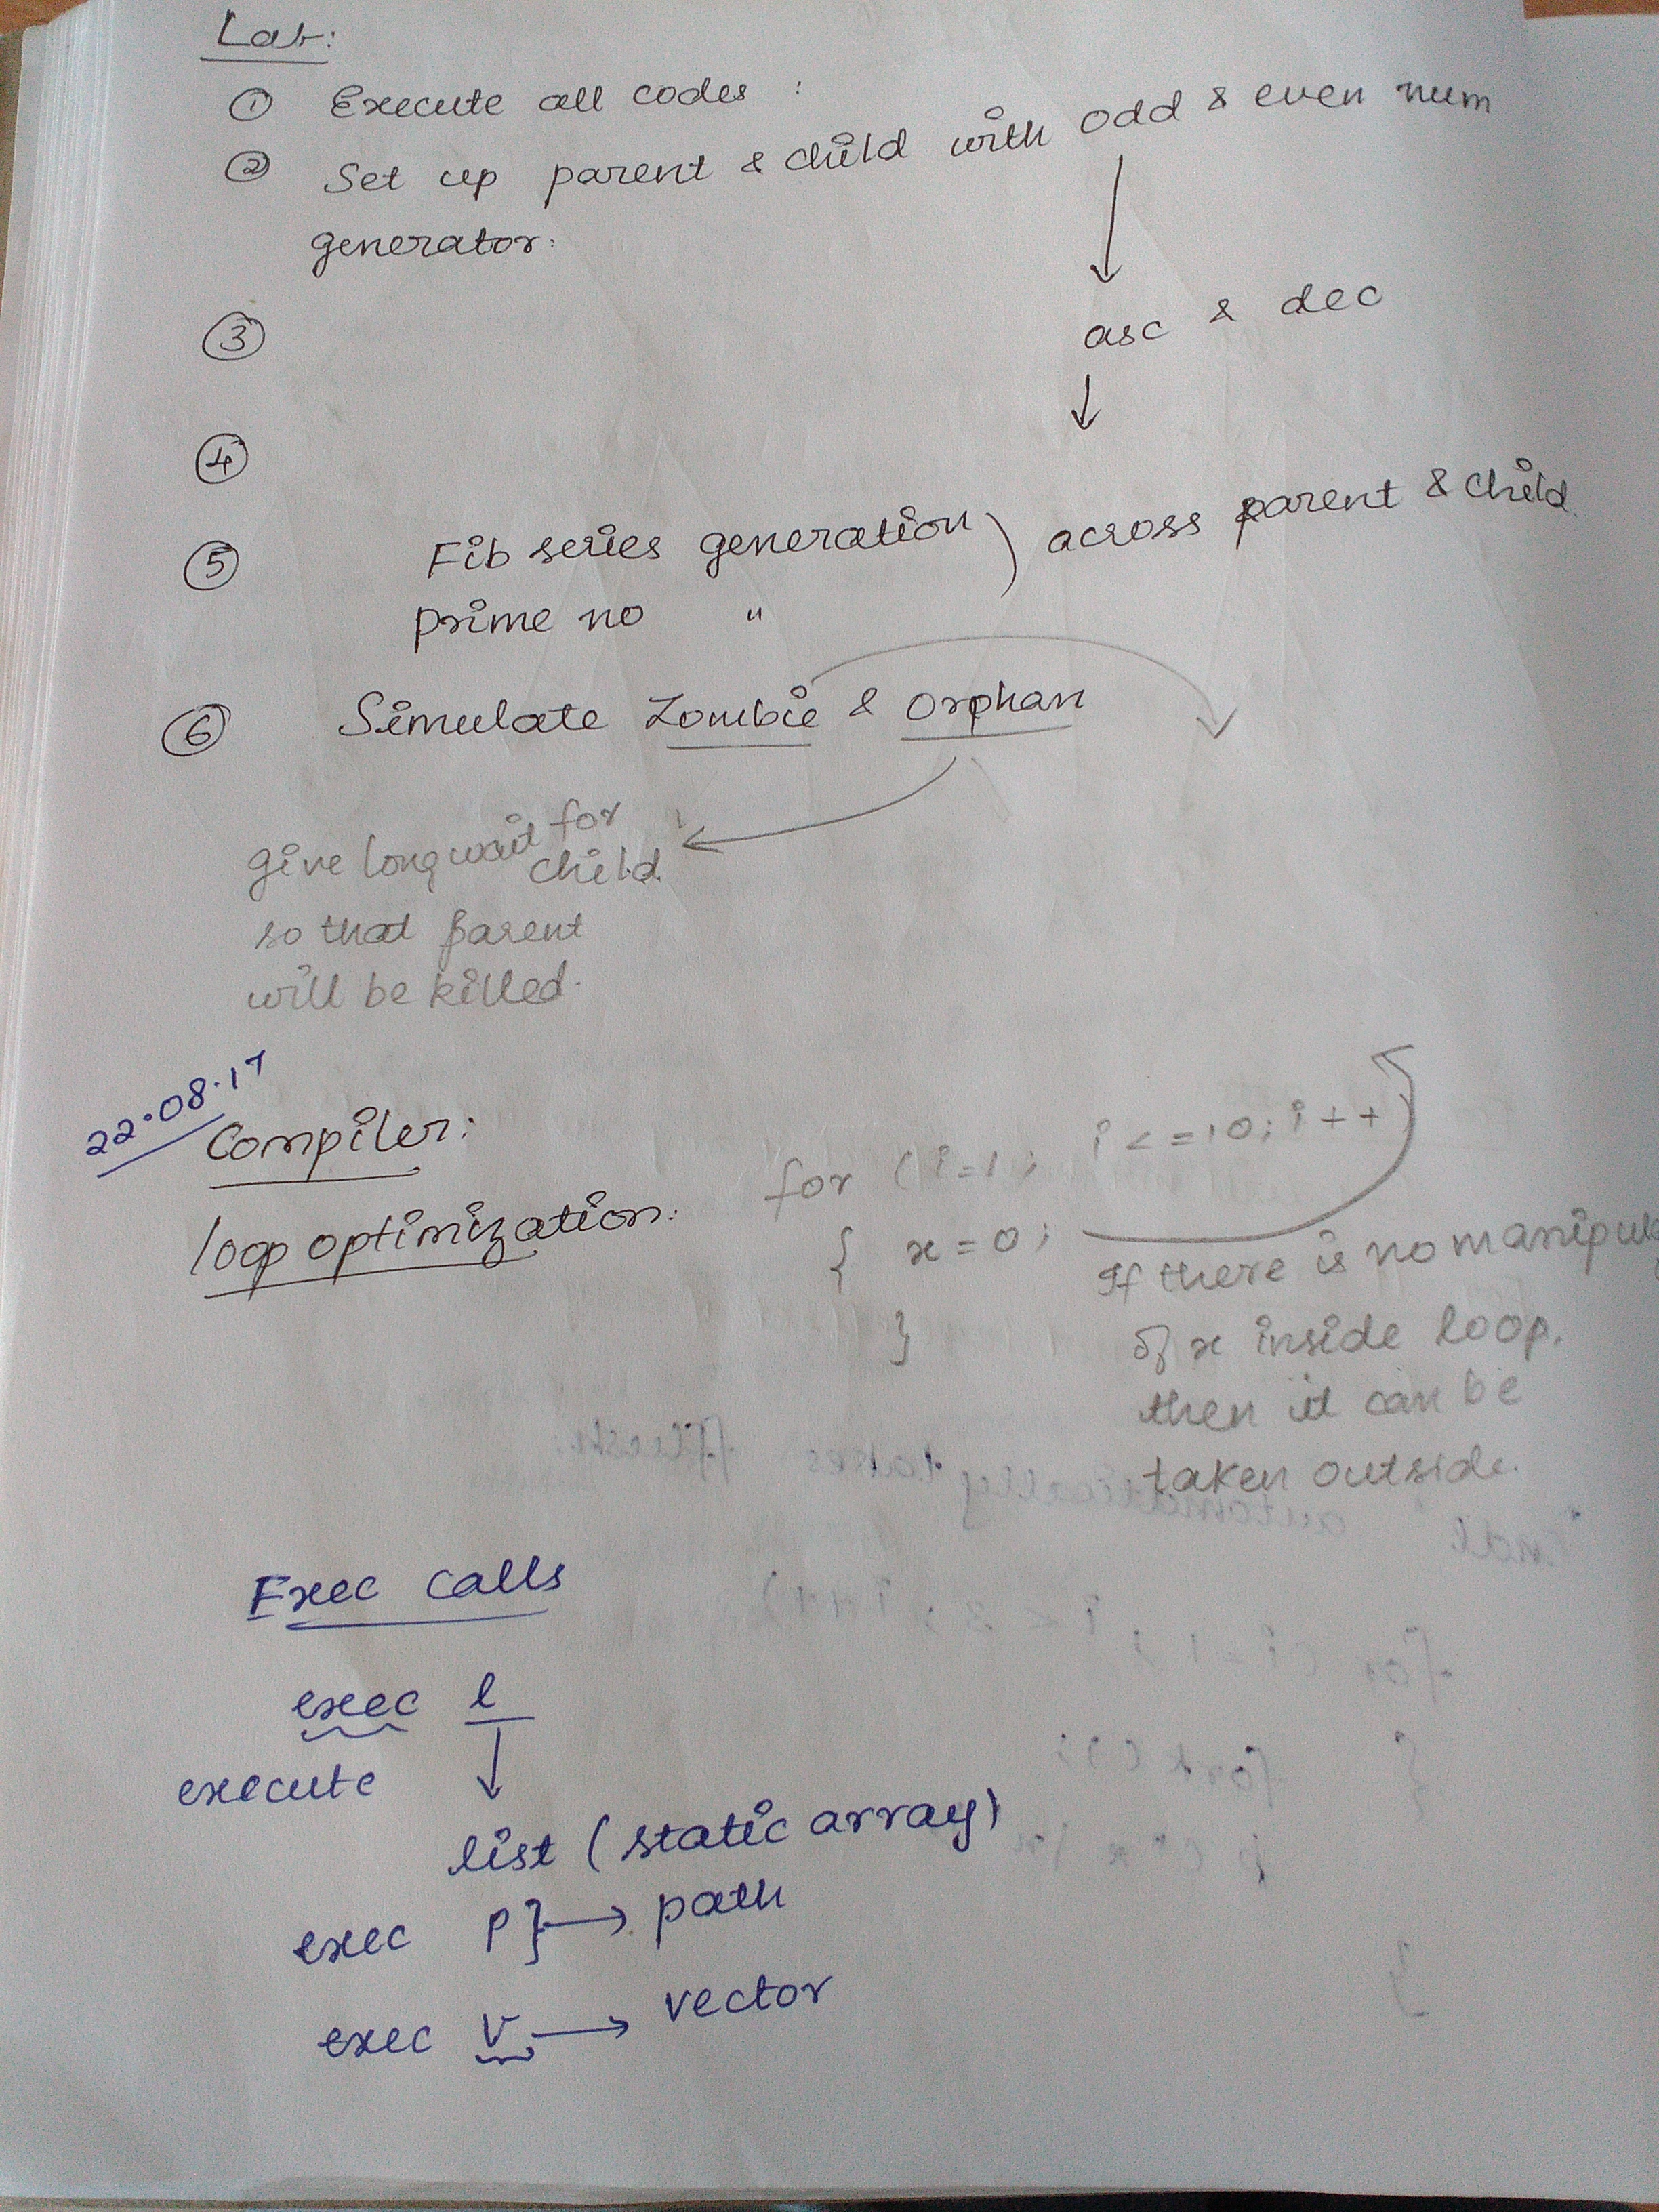 Lab:
① Execute all codes :
② Set up parent & child with odd & even num
generator.
③ asc & dec
④
⑤ Fib series generation ) across parent & child
prime no "
⑥ Simulate Zombie & Orphan
give long wait for
child
so that parent
will be killed.
22.08.17
Compiler:
loop optimization: for (i=1; i<=10; i++)
{ x=0;
}
If there is no manipul
of x inside loop.
then it can be
taken outside.
Exec calls
exec l
execute
list (static array)
exec p} → path
exec v → vector